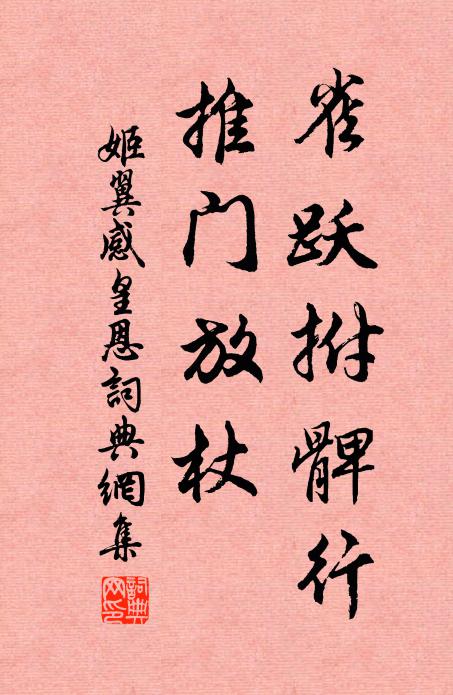 雀跃拊髀行
推门放杖
姬翼感皇恩詞典網集
詞典网印